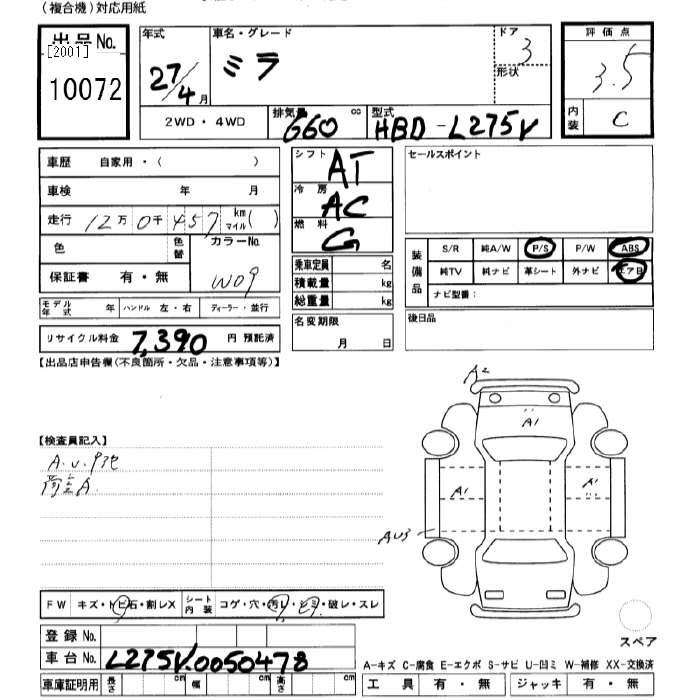 （複合機）対応用紙
出品No.
[2001]
10072
年式 27/4月
車名・グレード
ミラ
ドア 3
形状
評価点
3.5
内装 C
2WD・4WD
排気量 660 cc
型式 HBD-L275V
車歴 自家用・（ ）
車検 年 月
走行 12万0千457 km マイル（ ）
色 色替 カラーNo. W09
保証書 有・無
モデル年式 年 ハンドル 左・右 ディーラー・並行
リサイクル料金 7,390 円 預託済
シフト AT
冷房 AC
燃料 G
乗車定員 名
積載量 kg
総重量 kg
名変期限
月 日
セールスポイント
装備品
S/R 純A/W P/S P/W ABS
純TV 純ナビ 革シート 外ナビ エアB
ナビ型番：
後日品
【出品店申告欄（不良箇所・欠品・注意事項等）】
【検査員記入】
A.U.
A
A2
A1
A1
A1
AU3
FW キズ・トビ石・割レX
シート内装 コゲ・穴・汚レ・シミ・破レ・スレ
登録No.
車台No. L275V.0050478
車庫証明用 長さ cm 幅 cm 高さ cm
スペア
A-キズ C-腐食 E-エクボ S-サビ U-凹ミ W-補修 XX-交換済
工具 有・無 ジャッキ 有・無